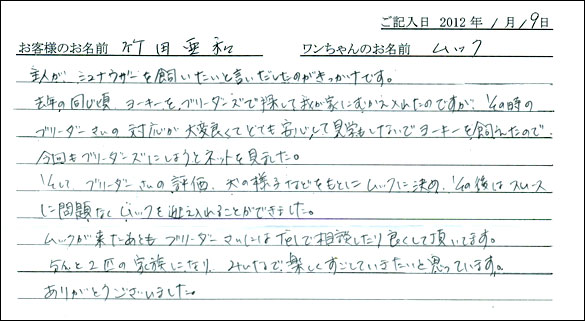 ご記入日 2012年 1月 19日
お客様のお名前 竹田亜和 ワンちゃんのお名前 ムック
主人が、シュナウザーを飼いたいと言いだしたのがきっかけです。
去年の同じ頃、ヨーキーを、ブリーダーズで探して我が家にむかえ入れたのですが、その時の
ブリーダーさんの対応が大変良くてとても安心して見学もしないでヨーキーを飼えたので
今回もブリーダーズにしようとネットを見ました。
そして、ブリーダーさんの評価、犬の様子などをもとにムックに決め、その後はスムーズ
に問題なくムックを迎え入れることができました。
ムックが来たあともブリーダーさんにはTelで相談したり良くして頂いてます。
やんと2匹の家族になり、みんなで、楽しくすごしていきたいと思っています。
ありがとうございました。